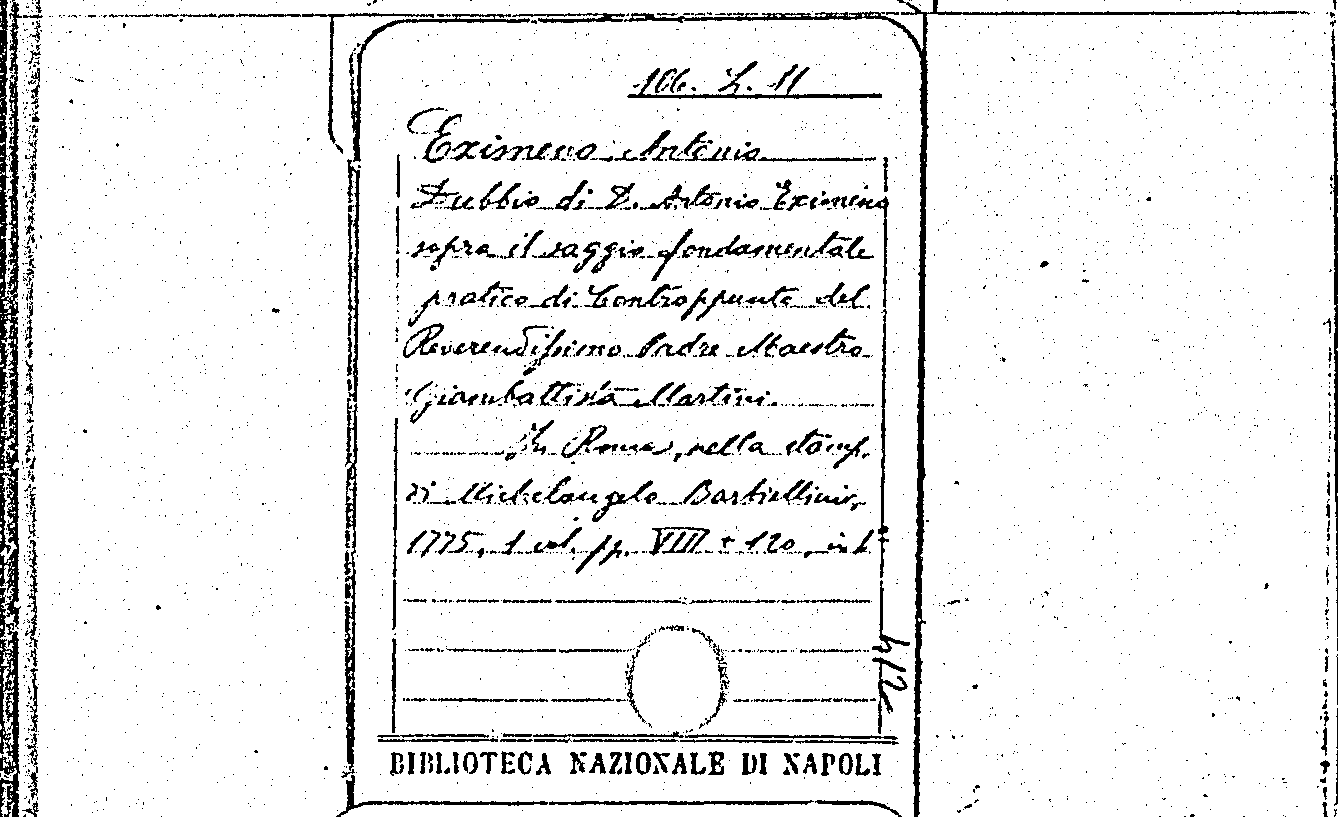 106. L. 11
Eximeno Antonio
Dubbio di D. Antonio Eximeno
sopra il saggio fondamentale
pratico di Contrappunto del
Reverendissimo Padre Maestro
Giambattista Martini.
In Roma, nella stamp.
di Michelangelo Barbiellini,
1775, 1 vol. pp. VIII + 120, in
BIBLIOTECA NAZIONALE DI NAPOLI